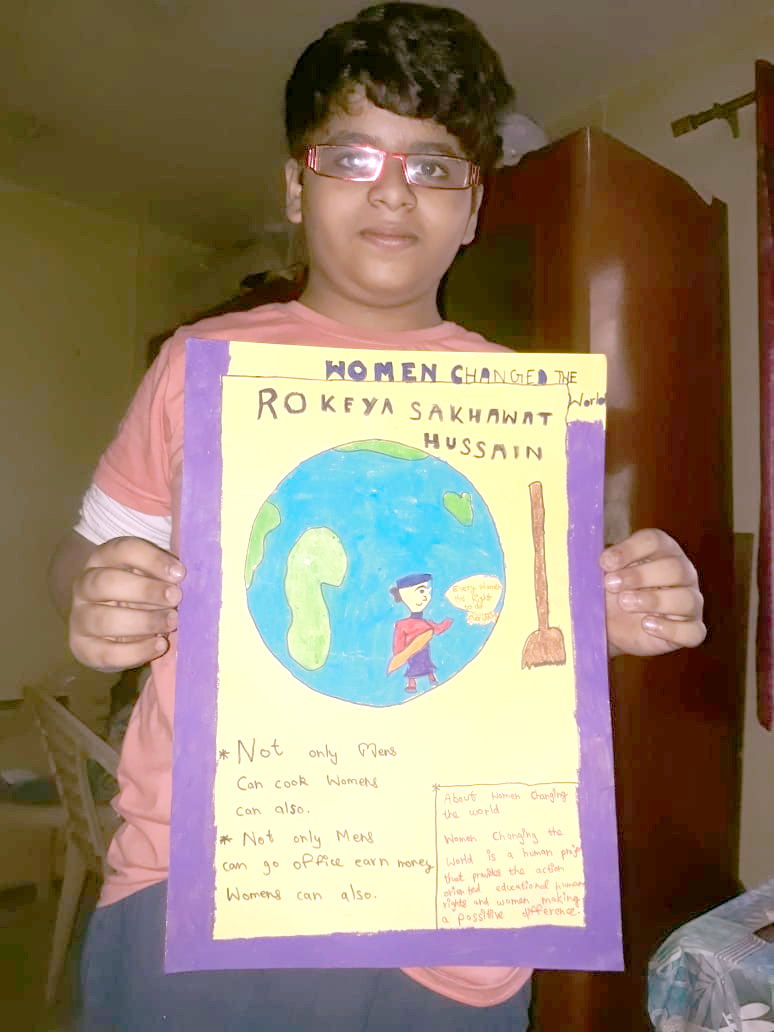 WOMEN CHANGED THE
World
ROKEYA SAKHAWAT
HUSSAIN
Every
the Right
to do
* Not only Mens
Can cook Womens
can also.
* Not only Mens
can go office earn money
Womens can also.
* About Women Changing
the world
Women Changing the
World is a human
that provides the action
oriented educational human
rights and women making
a possitive difference.